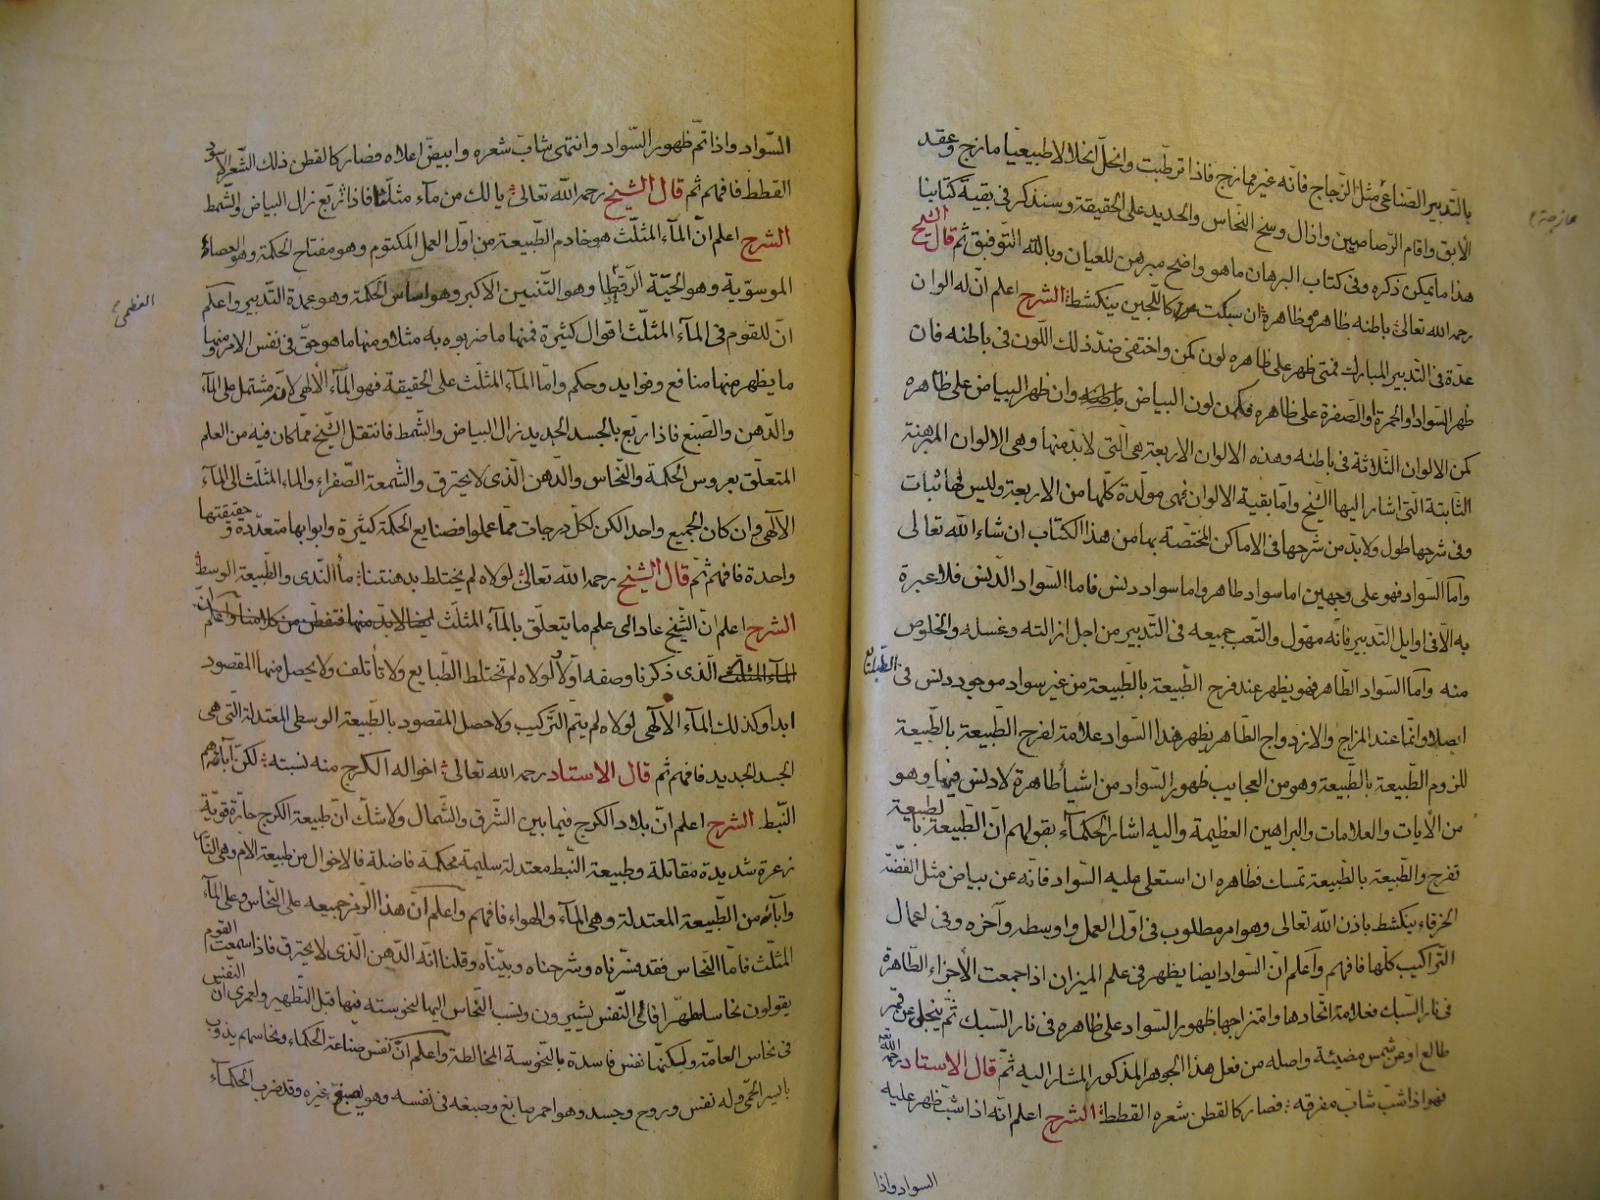 بالتدبير الصناعى مثل الزجاج فانه غير ممازج فاذا ترطبت وانحل انحلالا طبيعيا مازج وعقد
الآبق واقام الرصاصين وازال وسخ النحاس والحديد على الحقيقة وسنذكر فى بقية كتابنا
هذا ما يمكن ذكره وفى كتاب البرهان ما هو واضح مبرهن للعيان وبالله التوفيق ثم قال الشيخ
رحمه الله تعالى باطنه ظاهره وظاهره ان سبكت كاللجين ينكشط الشرح اعلم ان له الوان
عدة فى التدبير المبارك فمتى ظهر على ظاهره لون كمن واختفى ضد ذلك اللون فى باطنه فان
ظهر السواد او الحمرة او الصفرة على ظاهره فكمن لون البياض باطنه وان ظهر البياض على ظاهره
كمن الالوان الثلاثة فى باطنه وهذه الالوان الاربعة هى التى لا بد منها وهى الالوان المبرهنة
الثابتة التى اشار اليها الشيخ واما بقية الالوان فهى مولدة كلها من الاربعة وليس لها ثبات
وفى شرحها طول ولا بد من شرحها فى الاماكن المختصة بها من هذا الكتاب ان شاء الله تعالى
واما السواد فهو على وجهين اما سواد طاهر واما سواد دنس فاما السواد الدنس فلا عبرة
به الا فى اوايل التدبير فانه مهول والتعب جميعه فى التدبير من اجل ازالته وغسله والخلوص
منه واما السواد الطاهر فهو يظهر عند فرح الطبيعة بالطبيعة من غير سواد موجود دنس فى الطبايع
ايضا وانما عند المزاج والازدواج الطاهر يظهر هذا السواد علامة لفرح الطبيعة بالطبيعة
للزوم الطبيعة بالطبيعة وهو من العجايب ظهور السواد من اشيأ طاهرة لا دنس فيها وهو
من الآيات والعلامات والبراهين العظيمة واليه اشار الحكمآء بقولهم ان الطبيعة بالطبيعة
تفرح والطبيعة بالطبيعة تمسك فظاهره ان استعلى عليه السواد فانه عن بياض مثل الفضة
الخرقاء ينكشط باذن الله تعالى وهو امر مطلوب فى اول العمل واوسطه وآخره وفى اعمال
التراكيب كلها فافهم واعلم ان السواد ايضا يظهر فى علم الميزان اذا جمعت الأجزاء الطاهرة
فى نار السبك فعلامة اتحادها وامتزاجها ظهور السواد على ظاهره فى نار السبك ثم ينجلى عن قمر
طالع او عن شمس مضيئة واصله من فعل هذا الجوهر المذكور المشار اليه ثم قال الاستاد رحمه الله
فهو اذا شب شاب مفرقه فصار كالقطن شعره القطط الشرح اعلم انه اذا شب ظهر عليه
السواد واذا
السواد واذا تم ظهور السواد وانتهى شاب شعره وابيض اعلاه فصار كالقطن ذلك الشعر الاسود
القطط فافهم ثم قال الشيخ رحمه الله تعالى يا لك من مآء مثلثا فاذا تربع زال البياض والشمط
الشرح اعلم ان المآء المثلث هو خادم الطبيعة من اول العمل المكتوم وهو مفتاح الحكمة وهو العصاة
الموسوية وهو الحية الرقطا وهو التنين الاكبر وهو اساس الحكمة وهو عمدة التدبير واعلم
العظمى
ان للقوم فى المآء المثلث اقوال كثيرة فمنها ما ضربوه به مثلا ومنها ما هو حق فى نفس الامر ومنها
ما يظهر منها منافع وفوايد وحكم واما المآء المثلث على الحقيقة فهو المآء الالهى لانه مشتمل على المآء
والدهن والصبغ فاذا ربع بالجسد الجديد زال البياض والشمط فانتقل الشيخ مما كان فيه من العلم
المتعلق بعروس الحكمة والنحاس والدهن الذى لا يحترق والشمعة الصفراء والماء المثلث الى المآء
الآلهى وان كان الجميع واحد الكن لكل درجات مما عملوا فصنايع الحكمة كثيرة وابوابها متعددة وحقيقتها
واحدة فافهم ثم قال الشيخ رحمه الله تعالى لولاه لم يختلط بدهنتنا مأ الندى والطبيعة الوسط
الشرح اعلم ان الشيخ عاد الى علم ما يتعلق بالمآء المثلث لا بد منها فتفطن من كلامنا واعلم ان
المآء المثلث الذى ذكرنا وصفه اولا لولاه لم تختلط الطبايع ولا تأتلف ولا يحصل منها المقصود
ابدا وكذلك المآء الآلهى لولاه لم يتم التركيب ولا حصل المقصود بالطبيعة الوسطى المعتدلة التى هى
الجسد الجديد فافهم ثم قال الاستاد رحمه الله تعالى اخواله الكرج منه نسبته لكن آبائهم هم
النبط الشرح اعلم ان بلاد الكرج فيما بين الشرق والشمال ولا شك ان طبيعة الكرج حارة قوية
زعرة شديدة مقاتلة وطبيعة النبط معتدلة سليمة محكمة فاضلة فالاخوال من طبيعة الام وهى النار
وابآئه من الطبيعة المعتدلة وهى المآء والهواء فافهم واعلم ان هذا الرمز جميعه على النحاس وعلى المآء
المثلث فاما النحاس فقد فسرناه وشرحناه وبيناه وقلنا انه الدهن الذى لا يحترق فاذا سمعت القوم
يقولون نحاسا مطهرا فالى النفس يشيرون ونسب النحاس اليها لنحوسته فيها قبل التطهير ولعمرى ان النفس
فى نحاس العامة ولكنها نفس فاسدة بالنحوسة المخالطة واعلم ان نفس صناعة الحكماء ونحاسهم يذوب
باليسير الحمى وله نفس وروح وجسد وهو احمر صابغ وصبغه فى نفسه وهو يصبغ غيره وقد ضرب الحكمآء